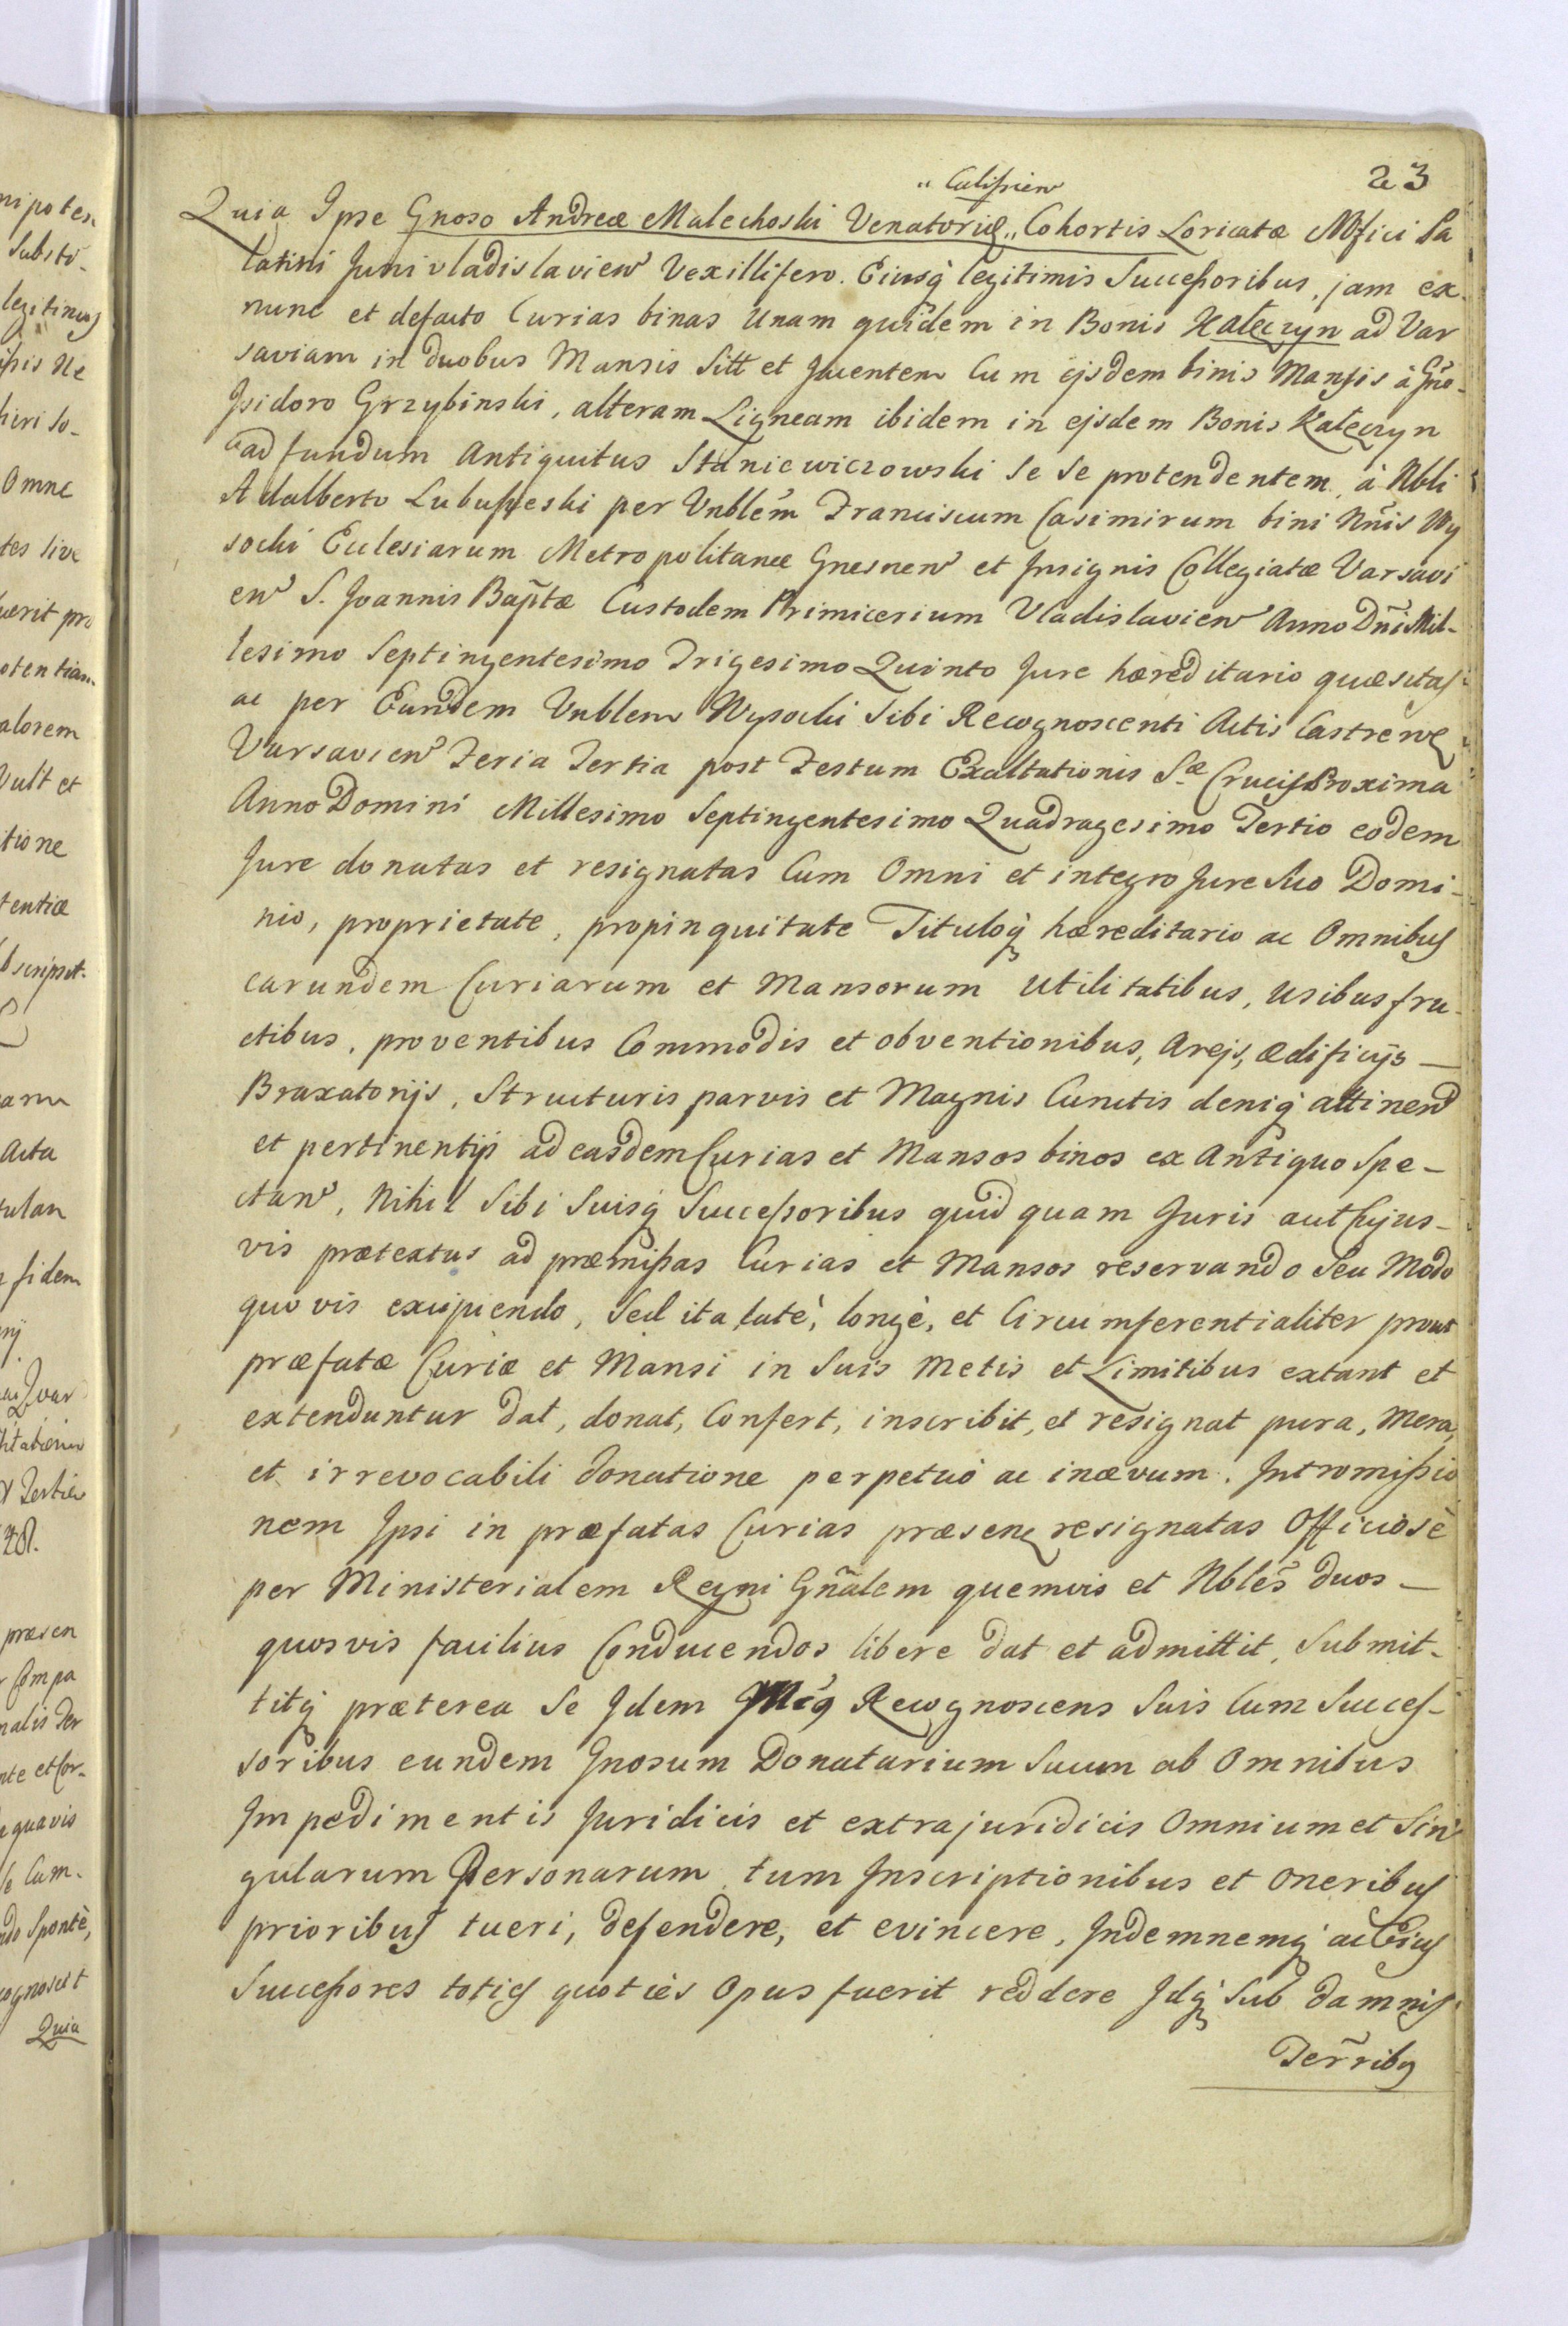 23
„ Calissien
Quia Ipse Gnoso Andreæ Malechoski Venatorię „ Cohortis Loricatæ Mfici Pa
latini Juni vladislavien Vexillifero. Eiusq́ legitimis Successoribus, jam ex
nunc et defacto Curias binas Unam quidem in Bonis Kałęczyn ad Var
saviam in duobus Mansis Sitt et Jacentem Cum ejsdem binis Mansis à Gño-
Isidoro Grzybinski, alteram Ligneam ibidem in ejsdem Bonis Kałęczyn
ad fundum Antiquitus Staniewiczowski se se protendentem, à Nbli
Adalberto Lubaszeski per Vnblem̃ Franciscum Casimirum bini Nñis Wy
socki Ecclesiarum Metropolitanæ Gnesnen et Insignis Collegiatæ Varsavi
en S. Joannis Bap̃tæ Custodem Primicerium Vladislavien Anno Dñi Mil-
lesimo Septingentesimo Trigesimo Quinto Jure hæreditario quæsitas
ac per Eundem Vnblem Wysocki Sibi Recognoscenti Actis Castren
Varsavien Feria Tertia post Festum Exaltationis Sæ Crucis Proxima
Anno Domini Millesimo Septingentesimo Quadragesimo Tertio eodem
Jure donatas et resignatas Cum Omni et integro Jure Suo Domi-
nio, proprietate, propinquitate Tituloq́ hæreditario ac Omnibus
earundem Curiarum et Mansorum Utilitatibus, usibus fru-
ctibus, proventibus Commodis et obventionibus, Arejs, ædificijs —
Braxatorijs, Structuris parvis et Magnis Cunctis deniq́ attinen
et pertinentijs ad easdem Curias et Mansos binos ex Antiquo Spe-
ctan, Nihil Sibi Suisq́ Successoribus quid quam Juris aut Cujus-
vis prætextus ad præmissas Curias et Mansos reservando Seu Modo
quo vis excipiendo, Sed ita latè, longè, et Circumferentialiter prout
præfatæ Curiæ et Mansi in Suis Metis et Limitibus extant et
extenduntur dat, donat, Confert, inscribit, et resignat pura, Mera,
et irrevocabili donatione perpetuò ac inævum. Intromissio
nem Ipsi in præfatas Curias præsen resignatas Officiosè
per Ministerialem Regni Gñalem quemvis et Nbles̃ duos —
quosvis facilius Conducendos libere dat et admittit, Submit-
titq́ præterea Se Idem Recognoscens Suis Cum Succes-
soribus eundem Gnosum Donatarium Suum ab Omnibus
Impedimentis Juridicis et extrajuridicis Omnium et Sin
gularum Personarum tum Inscriptionibus et Oneribus
prioribus tueri, defendere, et evincere, Indemnemq́ ac Eius
Successores toties quotiès Opus fuerit reddere Idq́ Sub damnis
Ter̃ribꝰ